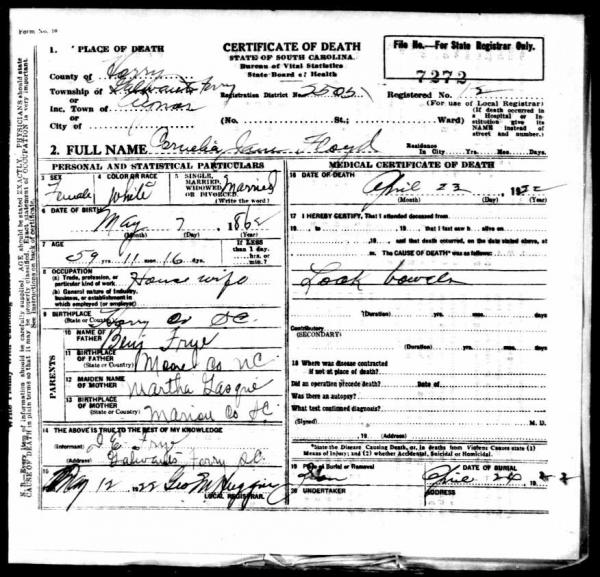 Form No. 10
1. PLACE OF DEATH
County of Horry
Township of Galwants Ferry
or
Inc. Town of
or
City of
CERTIFICATE OF DEATH
STATE OF SOUTH CAROLINA
Bureau of Vital Statistics
State Board of Health
Registration District No. 2505
File No.—For State Registrar Only.
7272
Registered No. 12
(For use of Local Registrar)
(No. St.; Ward)
(If death occurred in a Hospital or Institution give its NAME instead of street and number.)
2. FULL NAME Floyd
Residence In City Yrs. Mos. Days.
PERSONAL AND STATISTICAL PARTICULARS
3 SEX Female
4 COLOR OR RACE White
5 SINGLE, MARRIED, WIDOWED OR DIVORCED Married
(Write the word.)
6 DATE OF BIRTH May 7 1862
(Month) (Day) (Year)
7 AGE
59 yrs. 11 mos. 16 days.
If LESS than 1 day, hrs. or min.?
8 OCCUPATION
(a) Trade, profession, or particular kind of work House wife
(b) General nature of industry, business, or establishment in which employed (or employer)
9 BIRTHPLACE
(State or Country) Horry Co SC.
PARENTS
10 NAME OF FATHER Benj Frye
11 BIRTHPLACE OF FATHER
(State or Country) Moore Co NC.
12 MAIDEN NAME OF MOTHER Martha Gasque
13 BIRTHPLACE OF MOTHER
(State or Country) Marion Co SC.
14 THE ABOVE IS TRUE TO THE BEST OF MY KNOWLEDGE
(Informant) Frye
(Address) Galwants Ferry SC.
15
May 12 1922 Geo M Huggins
LOCAL REGISTRAR.
MEDICAL CERTIFICATE OF DEATH
16 DATE OF DEATH
April 23 1922
(Month) (Day) (Year)
17 I HEREBY CERTIFY, That I attended deceased from
19 to 19
that I last saw h alive on
19 and that death occurred, on the date stated above, at
m. The CAUSE OF DEATH* was as follows:
Lock bowels
(Duration) yrs. mos. days
Contributory
(SECONDARY)
(Duration) yrs. mos. days
18 Where was disease contracted
if not at place of death?
Did an operation precede death? Date of
Was there an autopsy?
What test confirmed diagnosis?
(Signed) M. D.
, 19 (Address)
*State the Disease Causing Death, or, in deaths from Violent Causes state (1) Means of Injury; and (2) whether Accidental, Suicidal or Homicidal.
19 Place of Burial or Removal
DATE OF BURIAL
24 1922
20 UNDERTAKER
ADDRESS